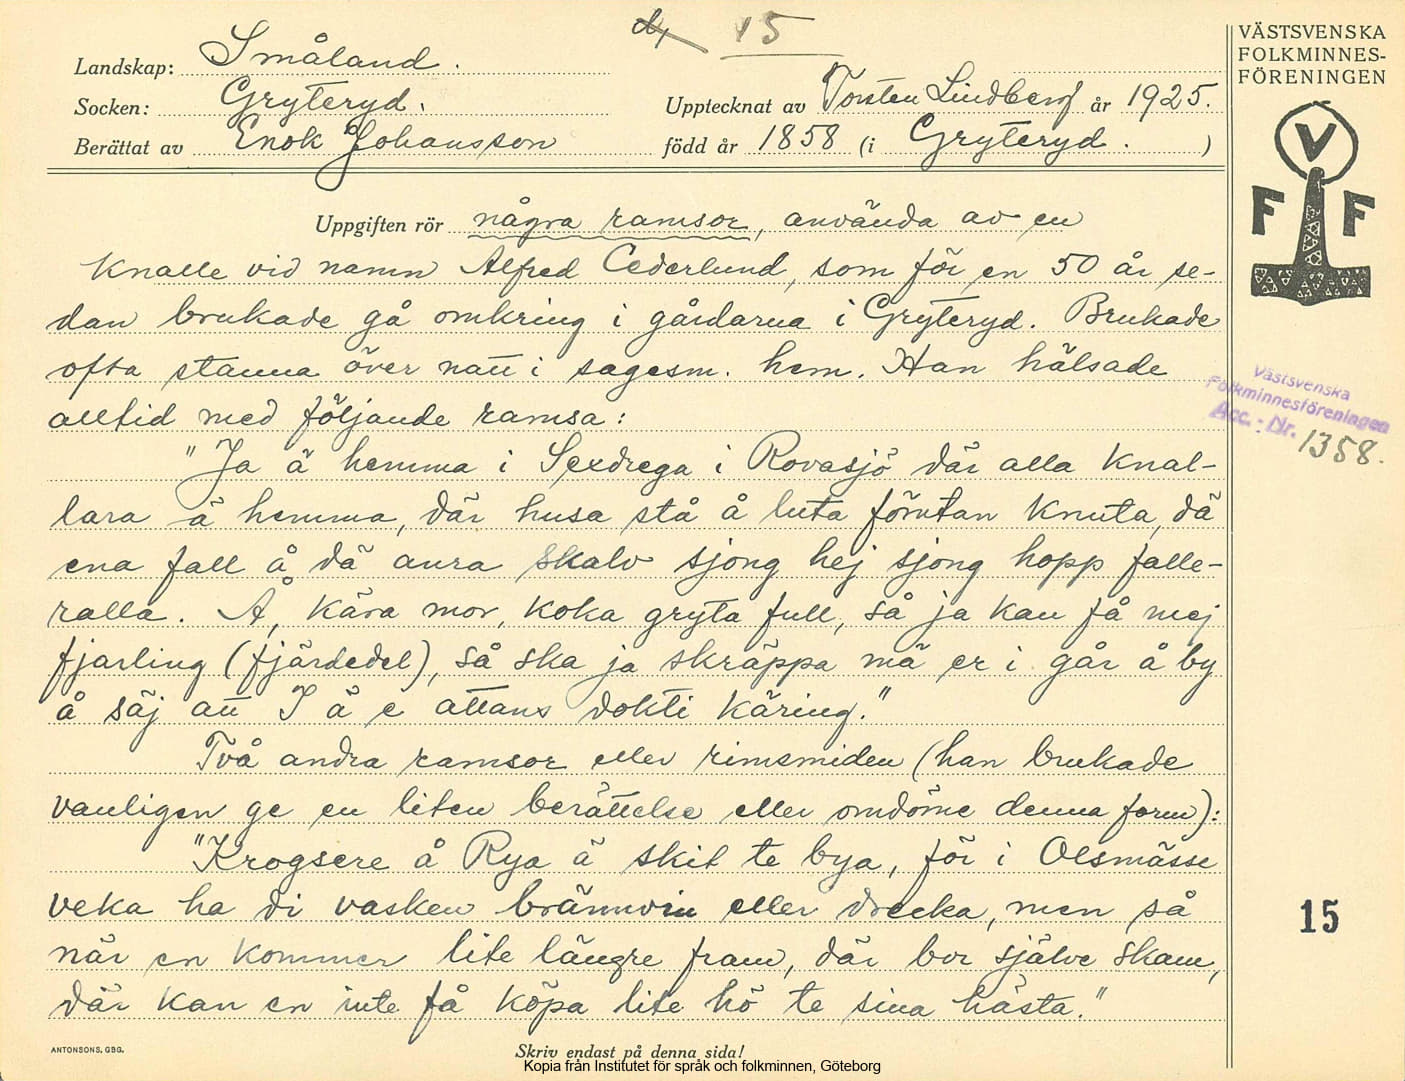 d, 15
VÄSTSVENSKA
FOLKMINNES-
FÖRENINGEN
Landskap: Småland.
Socken: Gryteryd. Upptecknat av Torsten Lindberg år 1925.
Berättat av Enok Johansson född år 1858 (i Gryteryd. )
V
F F
Uppgiften rör några ramsor, använda av en
knalle vid namn Alfred Cederlund, som för en 50 år se-
dan brukade gå omkring i gårdarna i Gryteryd. Brukade
ofta stanna över natt i sagesm. hem. Han hälsade
alltid med följande ramsa:
Västsvenska
Folkminnesföreningen
Acc. - Nr. 1358.
"Ja ä hemma i Sexdrega i Rovasjö där alla knal-
lara ä hemma, där husa stå å luta förutan knuta, dä
ena fall å dä aura skalv sjong hej sjong hopp falle-
ralla. Å, kära mor, koka gryta full, så ja kan få mej
fjarling (fjärdedel), så ska ja skräppa mä er i går å by
å säj att I ä e attans dokti käring."
Två andra ramsor eller rimsmiden (han brukade
vanligen ge en liten berättelse eller omdöme denna form):
"Krogsere å Rya ä skit te bya, för i Olsmässe
veka ha di vasken brännvin eller drecka, men så
när en kommer lite längre fram, där bor själve skam,
där kan en inte få köpa lite hö te sina hästa."
15
ANTONSONS, GBG.
Skriv endast på denna sida!
Kopia från Institutet för språk och folkminnen, Göteborg